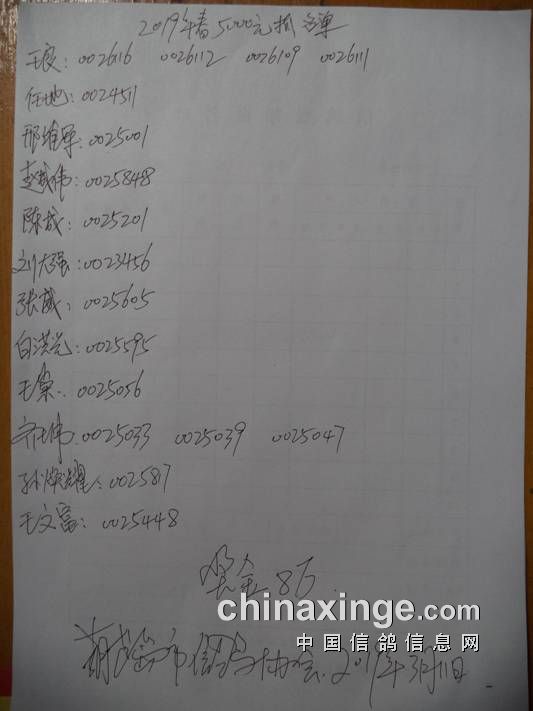 2019年春5000元指名单
王良：0026116 0026112 0026109 0026111
任地：0024511
邢维军：0025001
赵成伟：0025848
陈成：0025201
刘大强：0023456
张威：0025605
白洪光：0025595
王 ：0025056
齐伟：0025033 0025039 0025047
孙 耀：002587
王文富：0025448
奖金8万
chinaxinge.com
中国信鸽信息网
市信鸽协会 2019年3月11日